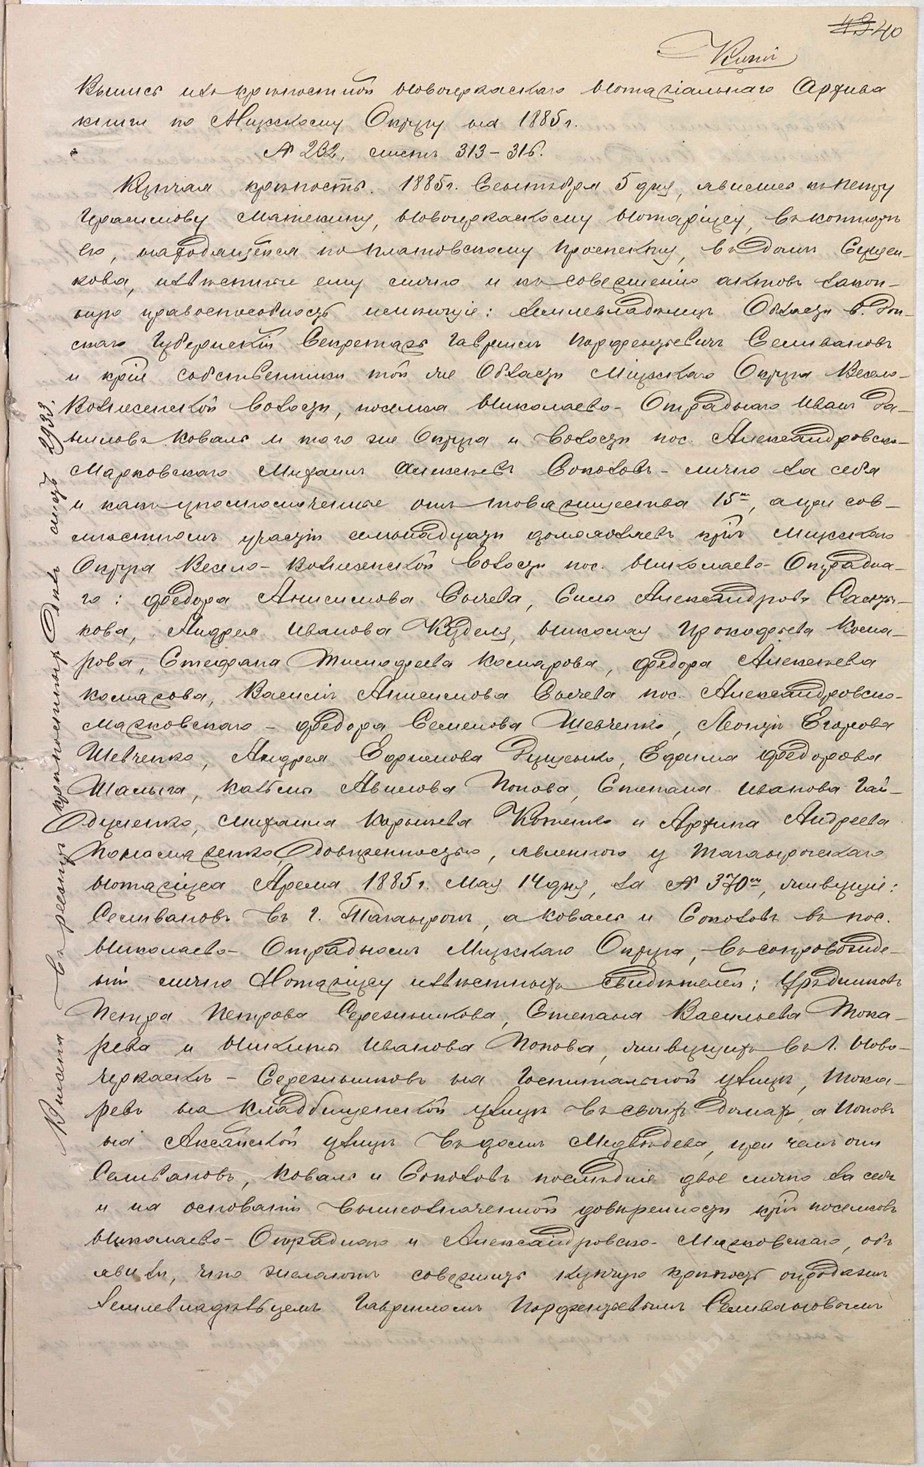 43 40
Копiя
Выпись изъ крѣпостной Новочеркаскаго Нотарiальнаго Архива
книги по Мiусскому Округу на 1885 г.
№ 262, листъ 313-316.
Купчая крѣпость. 1885 г. Сентября 5 дня, явились къ Петру
Герасимову Матекину, Новочеркаскому Нотарiусу, въ контору
его, находящуюся по Платовскому проспекту, въ домѣ
кова, извѣстные ему лично и къ совершенiю актовъ закон-
ную правоспособность имѣющiе: Землевладѣлецъ Области В. Дон-
скаго Губернскiй Секретарь Гаврiилъ Парфентьевичъ Селивановъ
и крестьяне собственники той же Области Мiусскаго Округа Весело-
Вознесенской волости, поселка Николаево-Отраднаго Иванъ Да-
ниловъ Коваль и того же Округа и волости пос. Александровско-
Марковскаго Михаилъ Алексѣевъ Соколовъ - лично за себя
и какъ уполномоченные отъ товарищества 15го, а при сов-
мѣстномъ участiи семьнадцати домохозяевъ крѣ Мiусскаго
Округа Весело-Вознесенской волости пос. Николаево-Отрадна-
го: Федора Анисимова Сычева, Сила Александрова
кова, Андрея Иванова Куделя, Николая Прокофьева Кома-
рова, Стефана Тимофеева Комарова, Федора Алексѣева
Комарова, Василiя Анисимова Сычева пос. Александровско-
Марковскаго - Федора Семенова Шевченко, Леонтiя Егорова
Шевченко, Андрея Ефимова Руценко, Ефима Федорова
Шалыга, Авилова Попова, Степана Иванова Гай-
дуценко, Михаила Кирѣева Котенко и Архипа Андреева
Пономаренко довѣренностью, явленною у Таганрогскаго
Нотарiуса Арема 1885 г. Мая 14 дня, за № 370м, живущiе:
Селивановъ въ г. Таганрогѣ, а Коваль и Соколовъ въ пос.
Николаево-Отрадномъ Мiусскаго Округа, въ сопровожде-
нiи лично Нотарiусу извѣстныхъ свидѣтелей; Урядниковъ
Петра Петрова Сережникова, Степана Васильева Тока-
рева и Никиты Иванова Попова, живущихъ въ г. Ново-
черкаскѣ - Сережниковъ на Госпитальной улицѣ, Тока-
ревъ на Кладбищенской улицѣ въ своихъ домахъ, а Поповъ
на Аксайской улицѣ въ домѣ Медвѣдева, при чемъ они
Селивановъ, Коваль и Соколовъ послѣднiе двое лично за себя
и на основанiи вышеозначенной довѣренности крѣ поселковъ
Николаево-Отраднаго и Александровско-Марковскаго, объ
явили, что желаютъ совершить купчую крѣпость о продажѣ
Землевладѣльцемъ Гаврiиломъ Парфентьевымъ Селивановымъ
Внесена въ реестръ крѣпостныхъ дѣлъ отдѣлъ 2938.